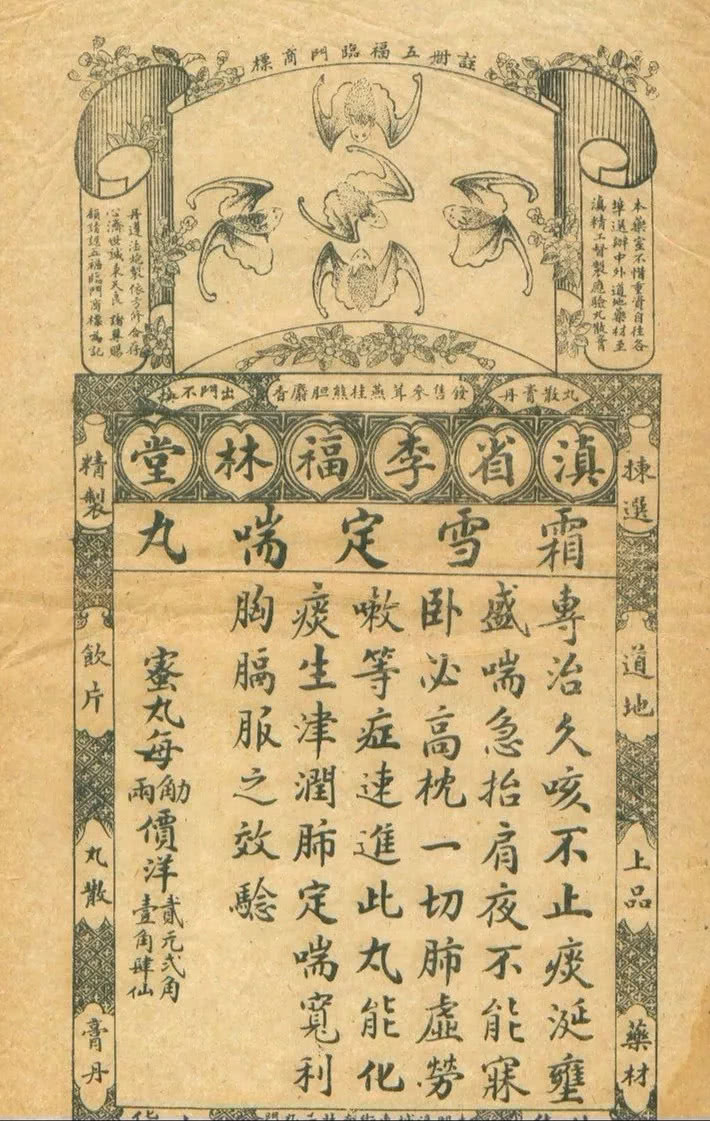 註冊五福臨門商標
本藥室不惜重資自往各
埠選辦中外道地藥材至
滇精工督製應驗丸散膏
丹遵法炮製依方修合存
心濟世誠秉天良 諸尊賜
顧請認五福臨門商標為記
丸散膏丹
發售參茸燕桂熊胆麝香
出門不換
滇省李福林堂
揀選
道地
上品
藥材
霜雪定喘丸
專治久咳不止痰涎壅
盛喘急抬肩夜不能寐
卧必高枕一切肺虛勞
嗽等症速進此丸能化
痰生津潤肺定喘寬利
胸膈服之效驗
蜜丸每觔兩價洋貳元弍角壹角肆仙
精製
飲片
丸散
膏丹